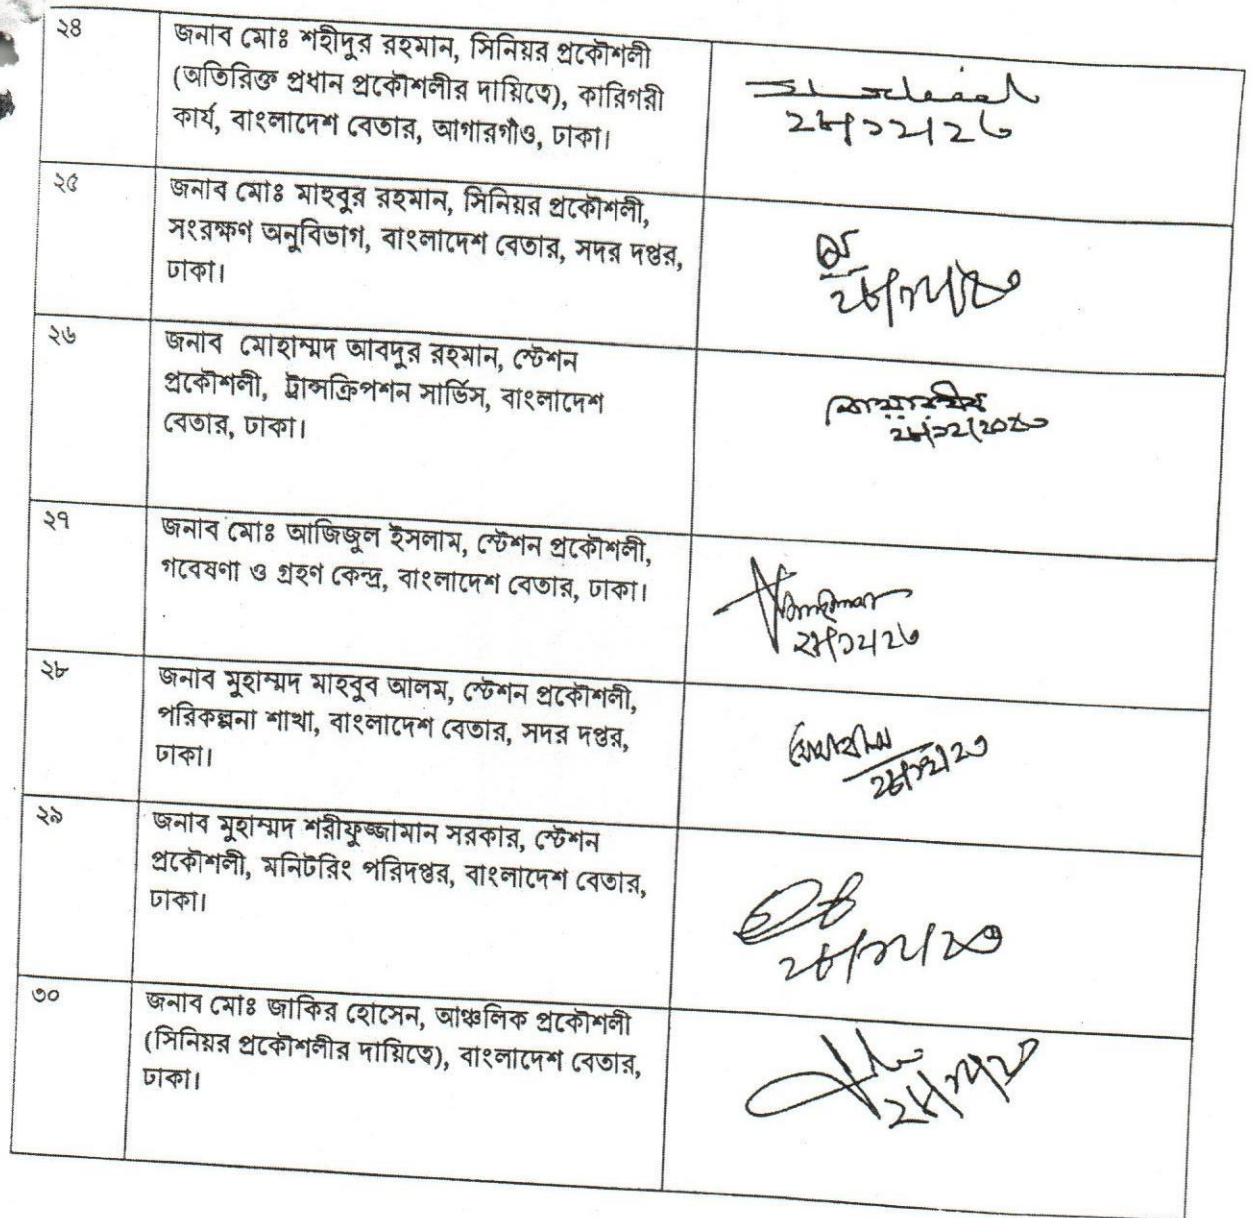 ২৪
জনাব মোঃ শহীদুর রহমান, সিনিয়র প্রকৌশলী
(অতিরিক্ত প্রধান প্রকৌশলীর দায়িত্বে), কারিগরী
কার্য, বাংলাদেশ বেতার, আগারগাঁও, ঢাকা।
২৫
জনাব মোঃ মাহবুর রহমান, সিনিয়র প্রকৌশলী,
সংরক্ষণ অনুবিভাগ, বাংলাদেশ বেতার, সদর দপ্তর,
ঢাকা।
২৬
জনাব মোহাম্মদ আবদুর রহমান, স্টেশন
প্রকৌশলী, ট্রান্সক্রিপশন সার্ভিস, বাংলাদেশ
বেতার, ঢাকা।
২৭
জনাব মোঃ আজিজুল ইসলাম, স্টেশন প্রকৌশলী,
গবেষণা ও গ্রহণ কেন্দ্র, বাংলাদেশ বেতার, ঢাকা।
২৮
জনাব মুহাম্মদ মাহবুব আলম, স্টেশন প্রকৌশলী,
পরিকল্পনা শাখা, বাংলাদেশ বেতার, সদর দপ্তর,
ঢাকা।
২৯
জনাব মুহাম্মদ শরীফুজ্জামান সরকার, স্টেশন
প্রকৌশলী, মনিটরিং পরিদপ্তর, বাংলাদেশ বেতার,
ঢাকা।
৩০
জনাব মোঃ জাকির হোসেন, আঞ্চলিক প্রকৌশলী
(সিনিয়র প্রকৌশলীর দায়িত্বে), বাংলাদেশ বেতার,
ঢাকা।